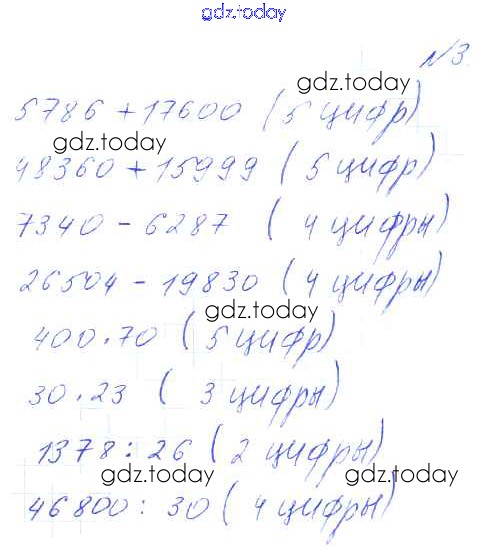 gdz.today
№3.
gdz.today
5786 + 17600 (5 цифр)
gdz.today
48360 + 15999 (5 цифр)
7340 - 6287 (4 цифры)
gdz.today
26504 - 19830 (4 цифры)
gdz.today
400 . 70 (5 цифр)
30 . 23 (3 цифры)
gdz.today
1378 : 26 (2 цифры)
gdz.today
gdz.today
46800 : 30 (4 цифры)